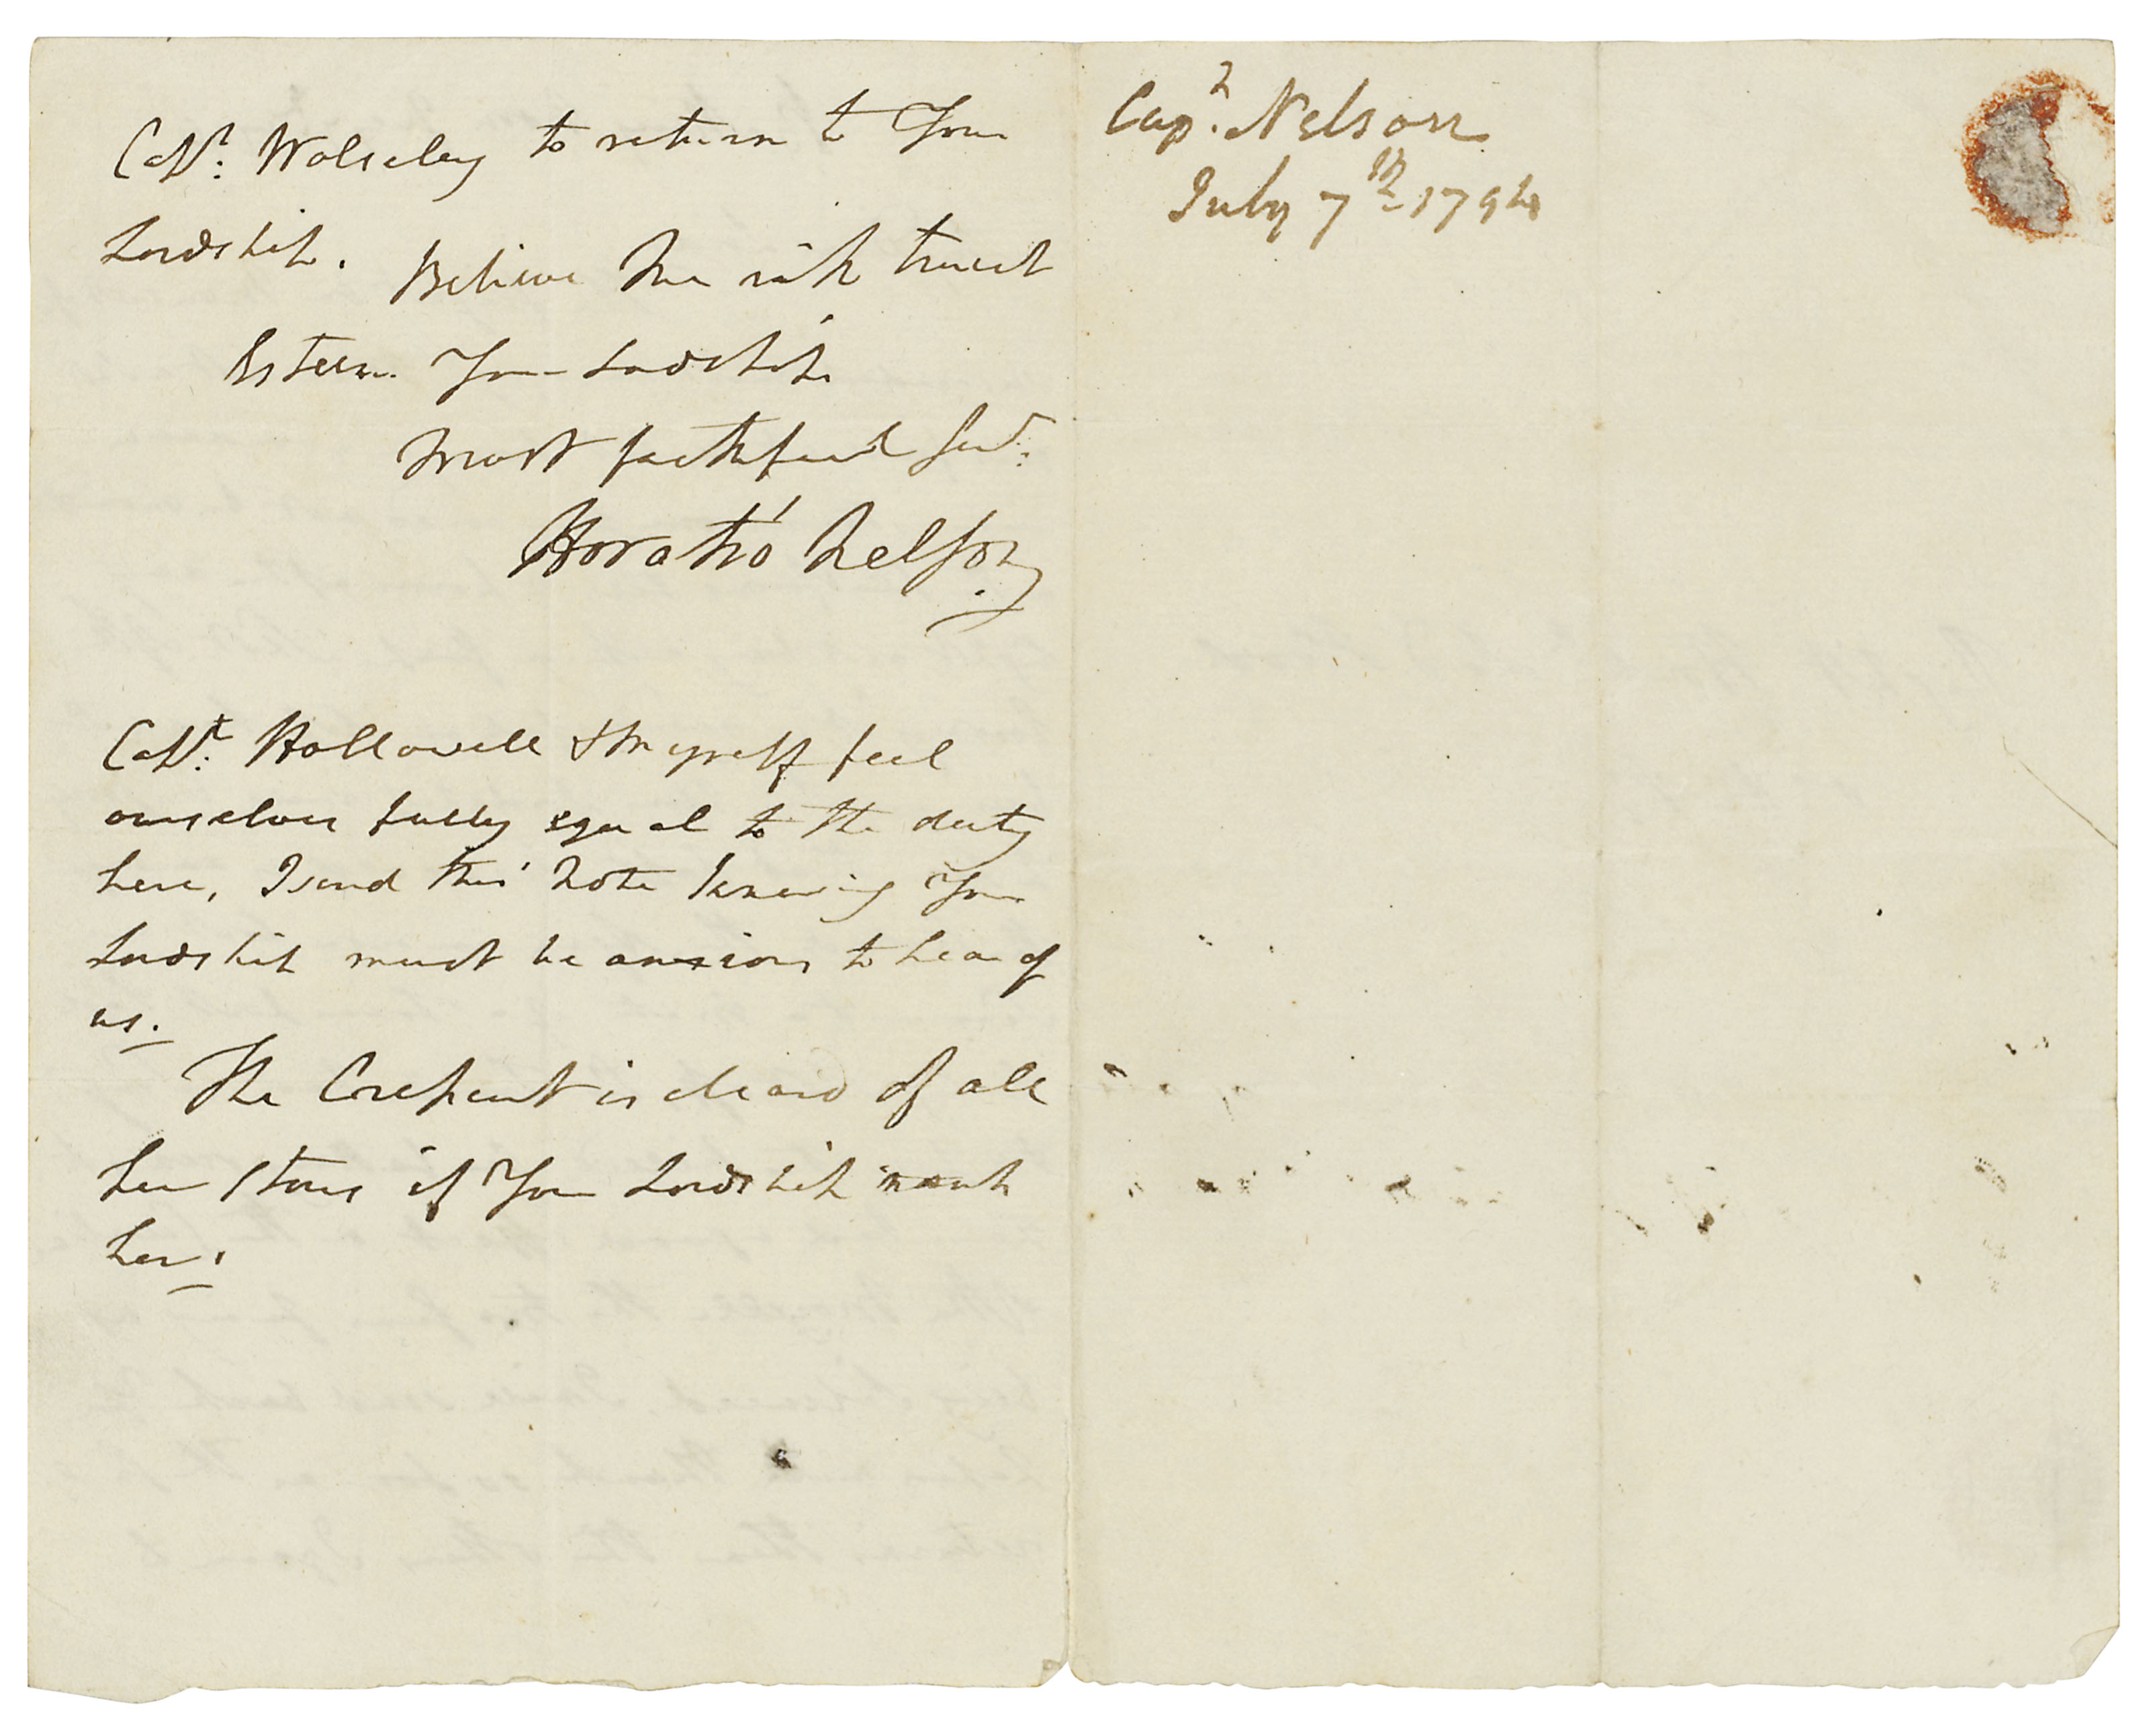 Capt: Wolseley to return to Your
Lordship. Believe Me with truest
Esteem Your Lordships
Most faithfull Servt:
Horatio Nelson
Capt: Hallowell & Myself feel
ourselves fully equal to the duty
here, I send this Note knowing Your
Lordship must be anxious to hear of
us.
The Crescent is cleard of all
her stores if Your Lordship wants
her.
Capt. Nelson
July 7th 1794